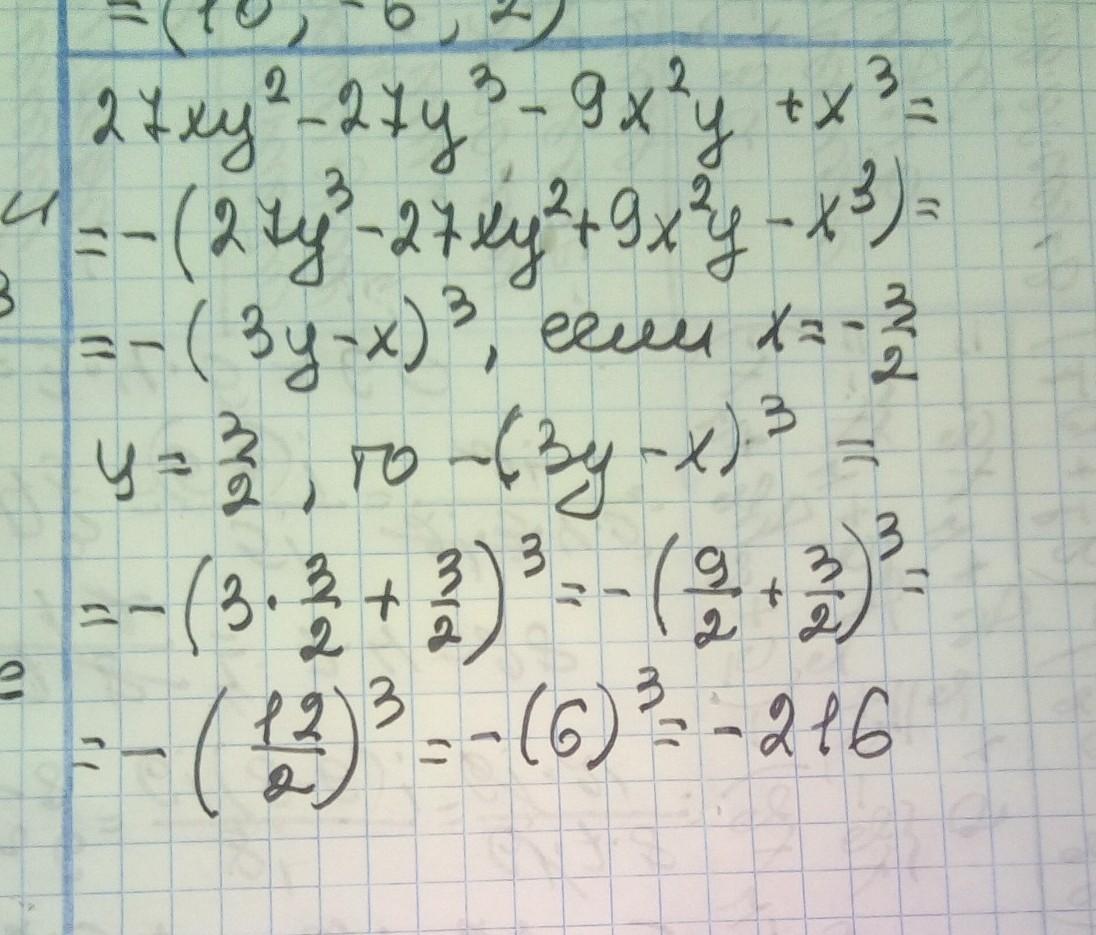 =(10, -6, 2)
27xy² - 27y³ - 9x²y + x³ =
= -(27y³ - 27xy² + 9x²y - x³) =
= -(3y - x)³, если x = -3/2
y = 3/2, то -(3y - x)³ =
= -(3 · 3/2 + 3/2)³ = -(9/2 + 3/2)³ =
= -(12/2)³ = -(6)³ = -216